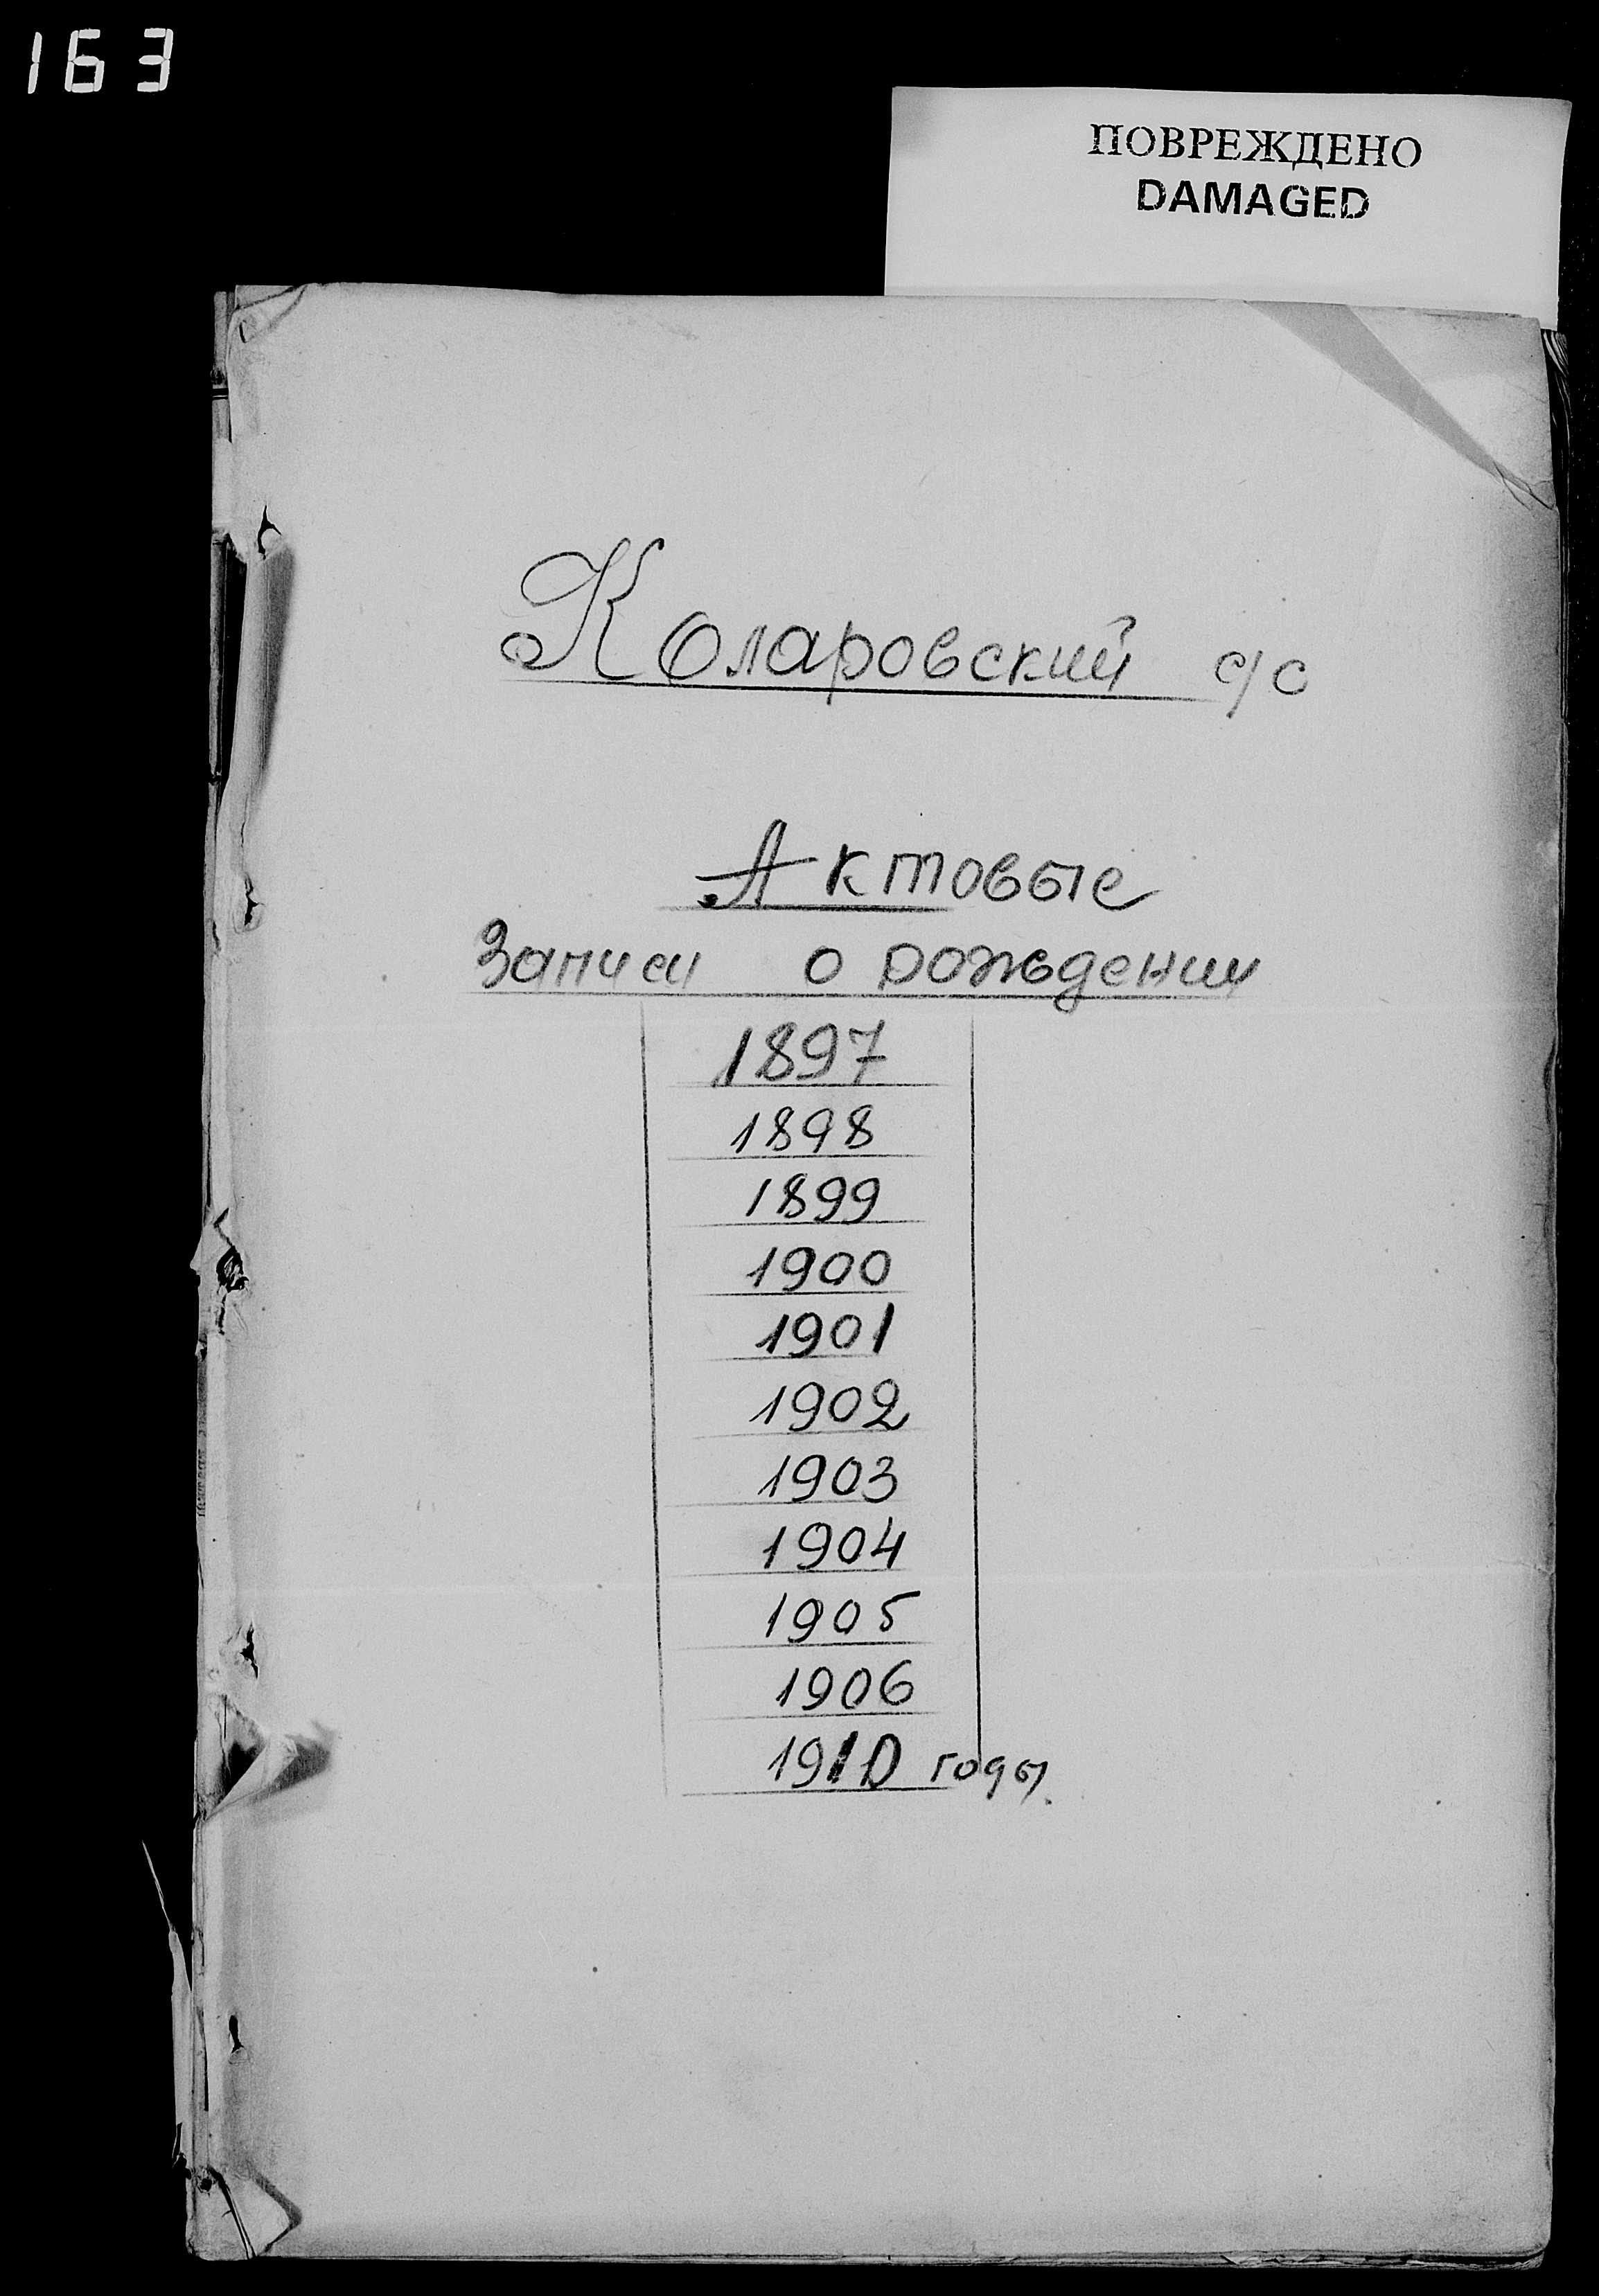 163
ПОВРЕЖДЕНО
DAMAGED
Коларовский с/с
Актовые
Записи о рождении
1897
1898
1899
1900
1901
1902
1903
1904
1905
1906
1910 годы.